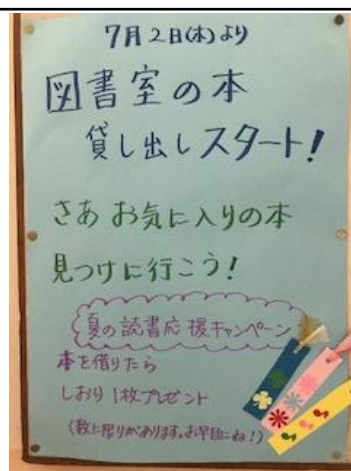 7月2日(木)より
図書室の本
貸し出しスタート!
さあ お気に入りの本
見つけに行こう!
夏の読書応援キャンペーン
本を借りたら
しおり1枚プレゼント
(数に限りがあります。お早目にね!)